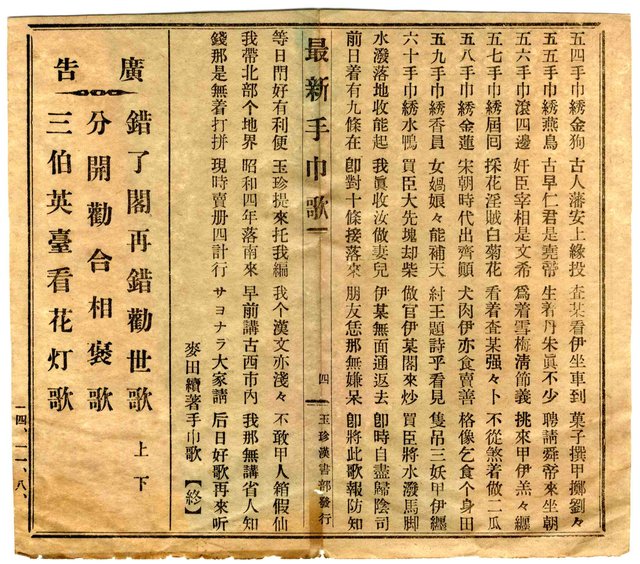 五四手巾綉金狗 古人藩安上緣投 查某看伊坐車到 菓子撰甲擲劉々
五五手巾綉燕鳥 古早仁君是堯帝 生着丹朱眞不少 聘請舜帝來坐朝
五六手巾滾四邊 奸臣宰相是文希 爲着雪梅淸節義 挑來甲伊羔々纏
五七手巾綉屆囘 採花淫賊白菊花 看着査某强々卜 不從煞着做二瓜
五八手巾綉金蓮 宋朝時代出齊顚 犬肉伊亦食賣善 格像乞食个身田
五九手巾綉香員 女媧娘々能補天 紂王題詩乎看見 隻吊三妖甲伊纏
六十手巾綉水鴨 買臣大先塊却柴 做官伊某閣來炒 買臣將水潑馬脚
水潑落地收能起 我眞收汝做妻兒 伊某無面通返去 卽時自盡歸陰司
前日着有九條在 卽對十條接落來 朋友恁那無嫌呆 卽將此歌報防知
最新手巾歌 四 玉珍漢書部發行
等日閂好有利便 玉珍提來托我編 我个漢文亦淺々 不敢甲人箱假仙
我帶北部个地界 昭和四年落南來 早前講古西市內 我那無講省人知
錢那是無着打拼 現時賣册四計行 サヨナラ大家講 后日好歌再來听
麥田續著手巾歌【終】
廣告
錯了閣再錯勸世歌 上下
分開勸合相褒歌
三伯英臺看花灯歌
一四、一一、八、